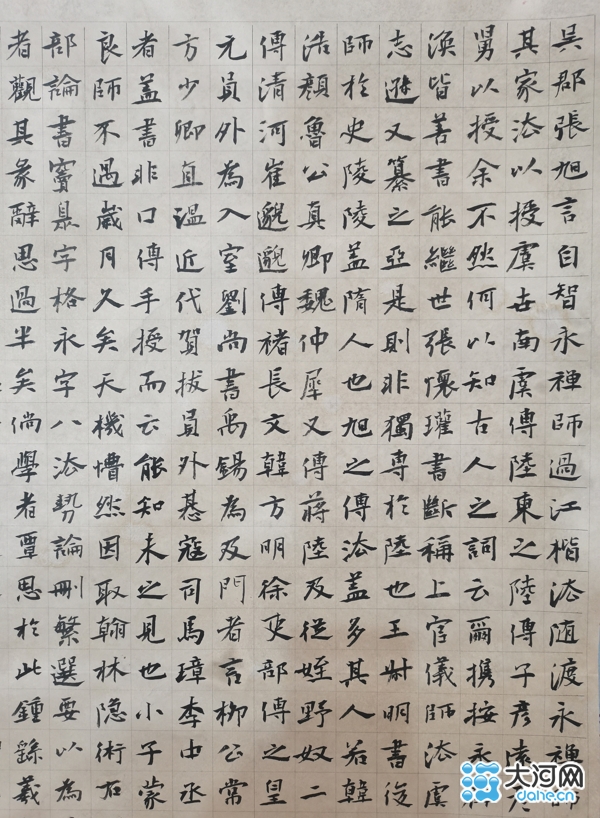 吴郡張旭言自智永禅師過江楷法随渡永禅師
其家法以授虞世南虞傳陸東之陸傳子彦遠
舅以授余不然何以知古人之詞云爾攜按永
渙皆善書能繼世張懷瓘書斷稱上官儀師法虞
志遜又纂之亞是則非獨專於陸也王明書從
師於史陵陵盖隋人也旭之傳法盖多其人若韓
浩顔魯公真卿魏仲犀又傳蒋陸及從姪野奴二
傳清河崔邈邈傳褚長文韓方明徐吏部傳之皇
元員外為入室劉尚書禹錫為及門者言柳公常
方少卿直温近代賀拔員外惎寇司馬璋李中丞
者盖書非口傳手授而云能知未之見也小子蒙
良師不過歲月久矣天機懵然因取翰林隐術右
部論書寶是字格永字八法勢論刪繁選要以為
者觀其彖辭思過半矣倘學者覃思於此鍾繇羲
大河网
dahe.cn